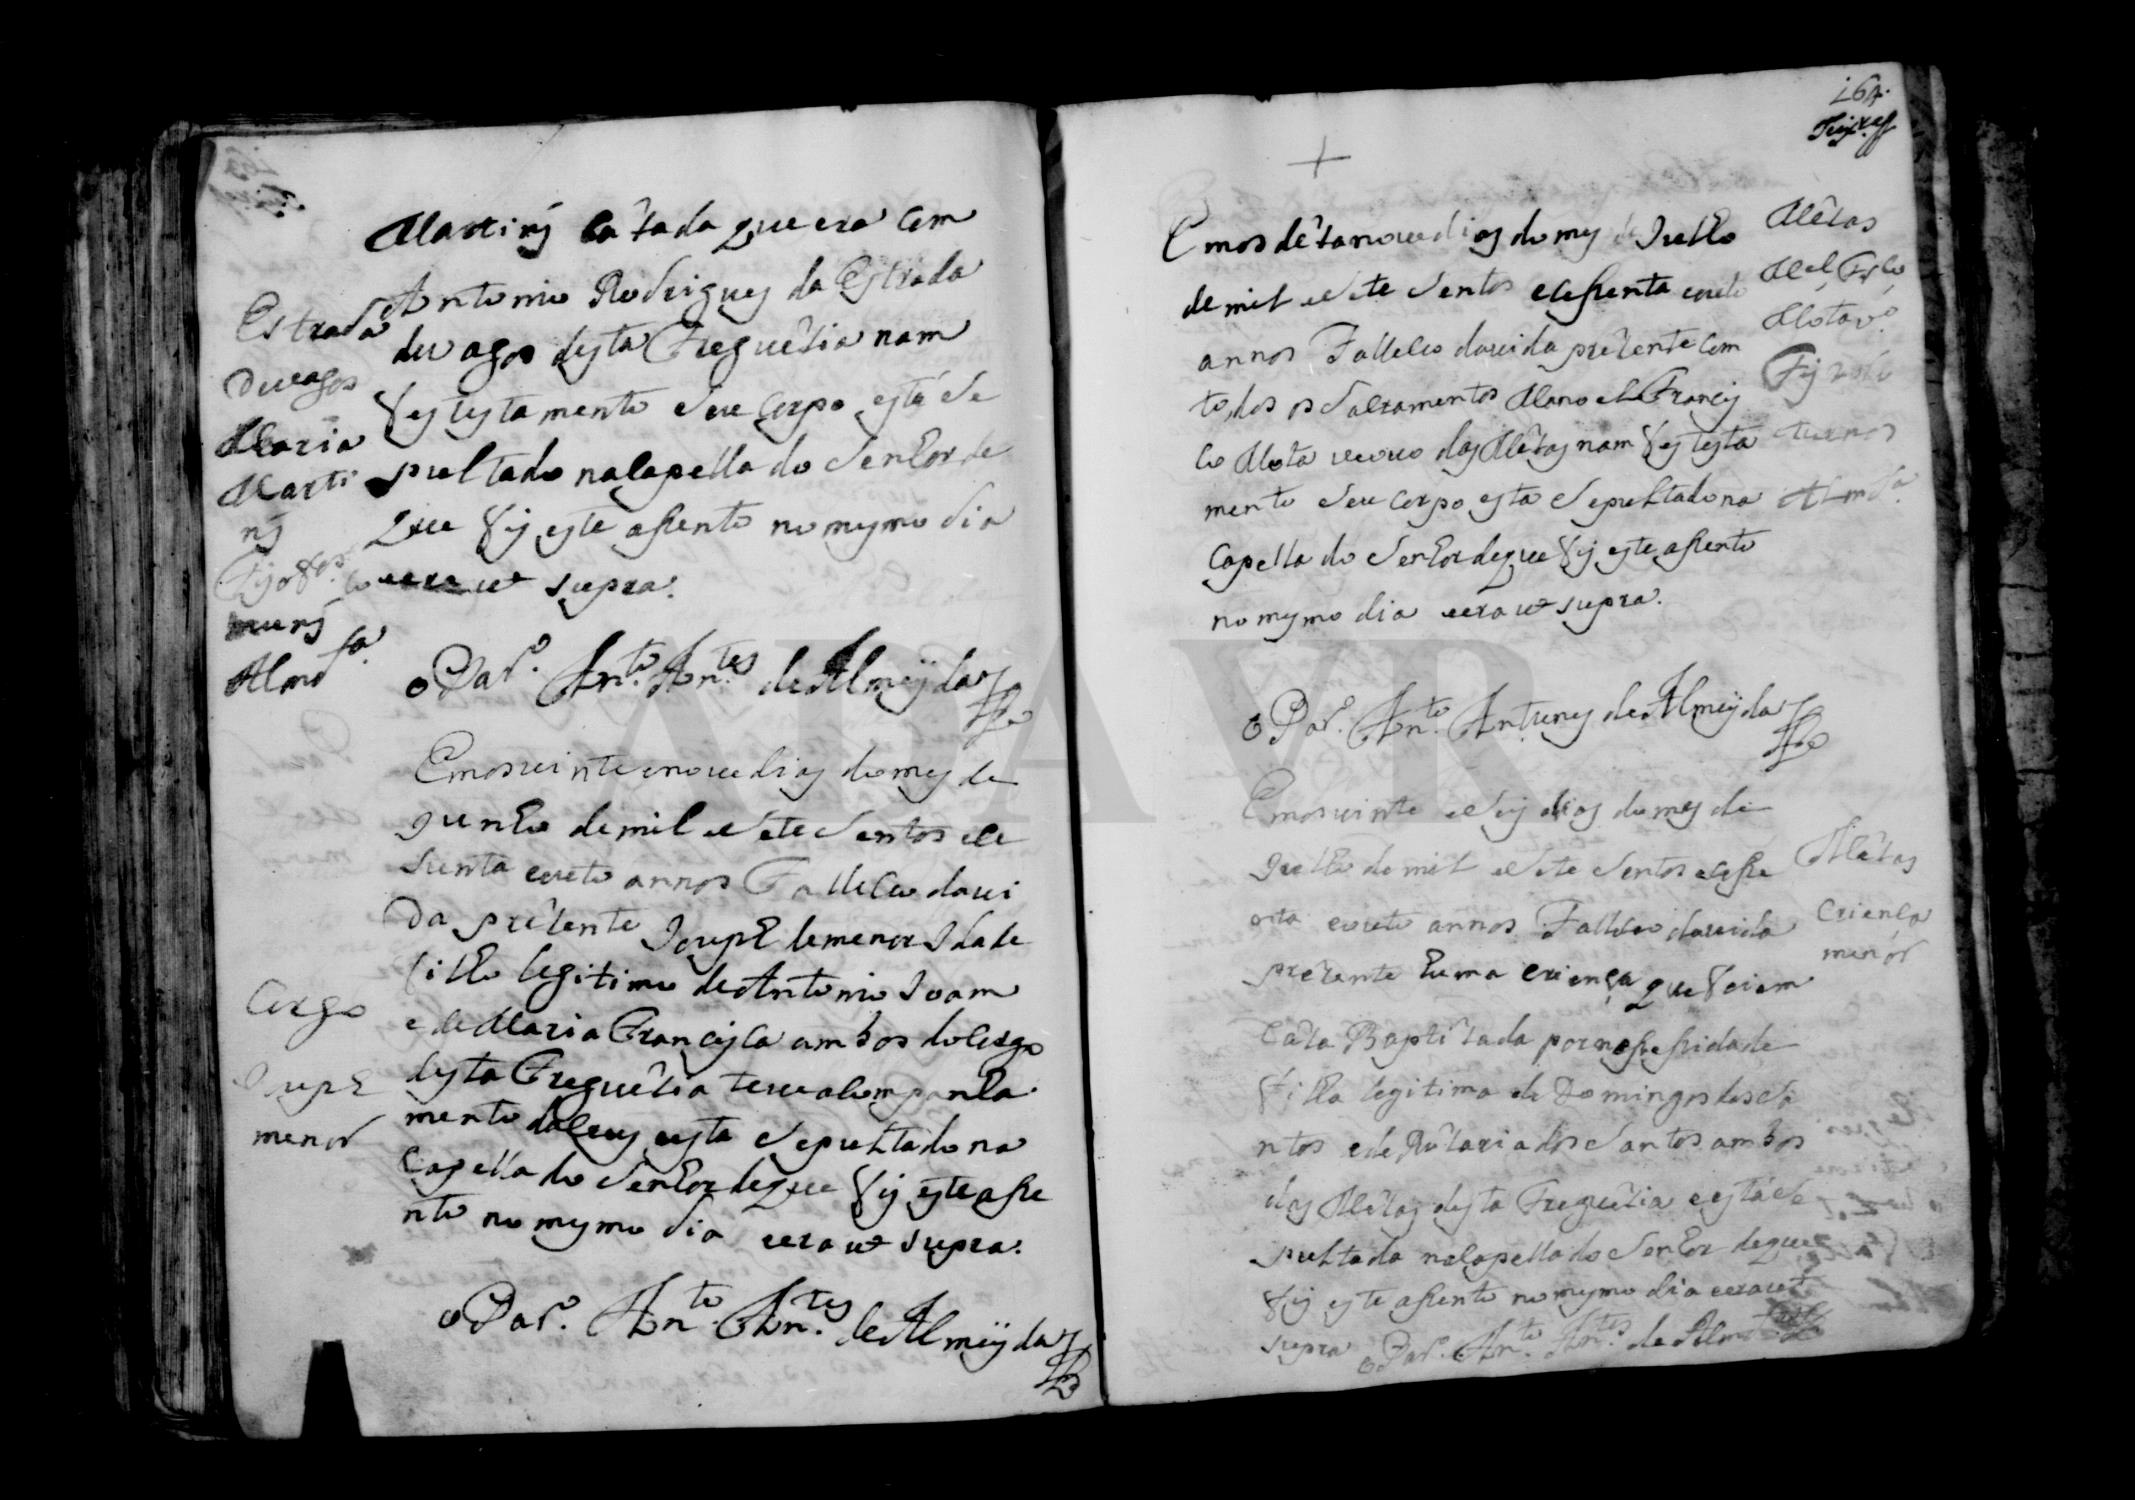 Martins Cazada que era Com
Antonio Rodrigues da Estrada
de vagos desta Freguezia nam
fes testamento e seu Corpo está se
pultado na Capella do Senhor de
que fis este assento no mesmo dia
era ut supra.
Estrada
de vagos
Maria
Marti
ns
Almda.
o Par.º Ant.to Ant.es de Almeyda
Em os vinte e nove dias do mes de
Junho de mil e sete Sentos e se
senta e outo annos Falleceo da vi
da prezente Joseph de menor Idade
filho legitimo de Antonio Joam
e de Maria Francisca ambos do Corgo
desta Freguezia teve acompanha
mento da Crus e esta Sepultado na
Capella do Senhor de que fis este asse
nto no mesmo dia era ut supra.
Corgo
Joseph
menor
o Par.º Ant.to Ant.es de Almeyda
164.
+
Em os dezanove dias do mes de Julho
de mil e sete Sentos e sesenta e outo
annos Falleceo da vida prezente Com
todos os Sacramentos Manoel Francis
co Mota viuvo das Mezas nam fes testa
mento e seu Corpo esta Sepultado na
Capella do Senhor de que fis este assento
no mesmo dia era ut supra.
Mezas
Mel Frco
Mota
Almda.
o Par.º Ant.to Antunes de Almeyda
Em os vinte e seis dias do mes de
Julho de mil e sete Sentos e sese
nta e outo annos Falleceo da vida
prezente huma criença que foi em
Caza Baptizada por nesessidade
filha legitima de Domingos dos Sa
ntos e de Rozaria dos Santos ambos
das Mezas desta Freguezia e está se
pultada na Capella do Senhor de que
fis este assento no mesmo dia era ut
supra o Par.º Ant.to Ant.es de Alm
Mezas
Criença
menor
ADAVR